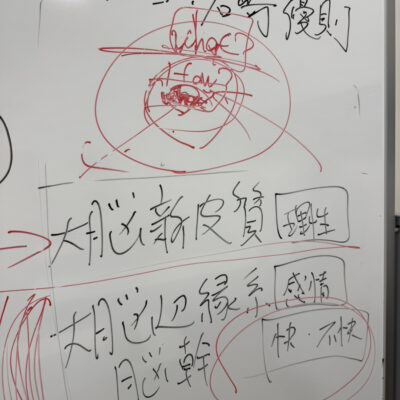 What?
How?
大脳新皮質 理性
大脳辺縁系 感情
脳幹 快・不快